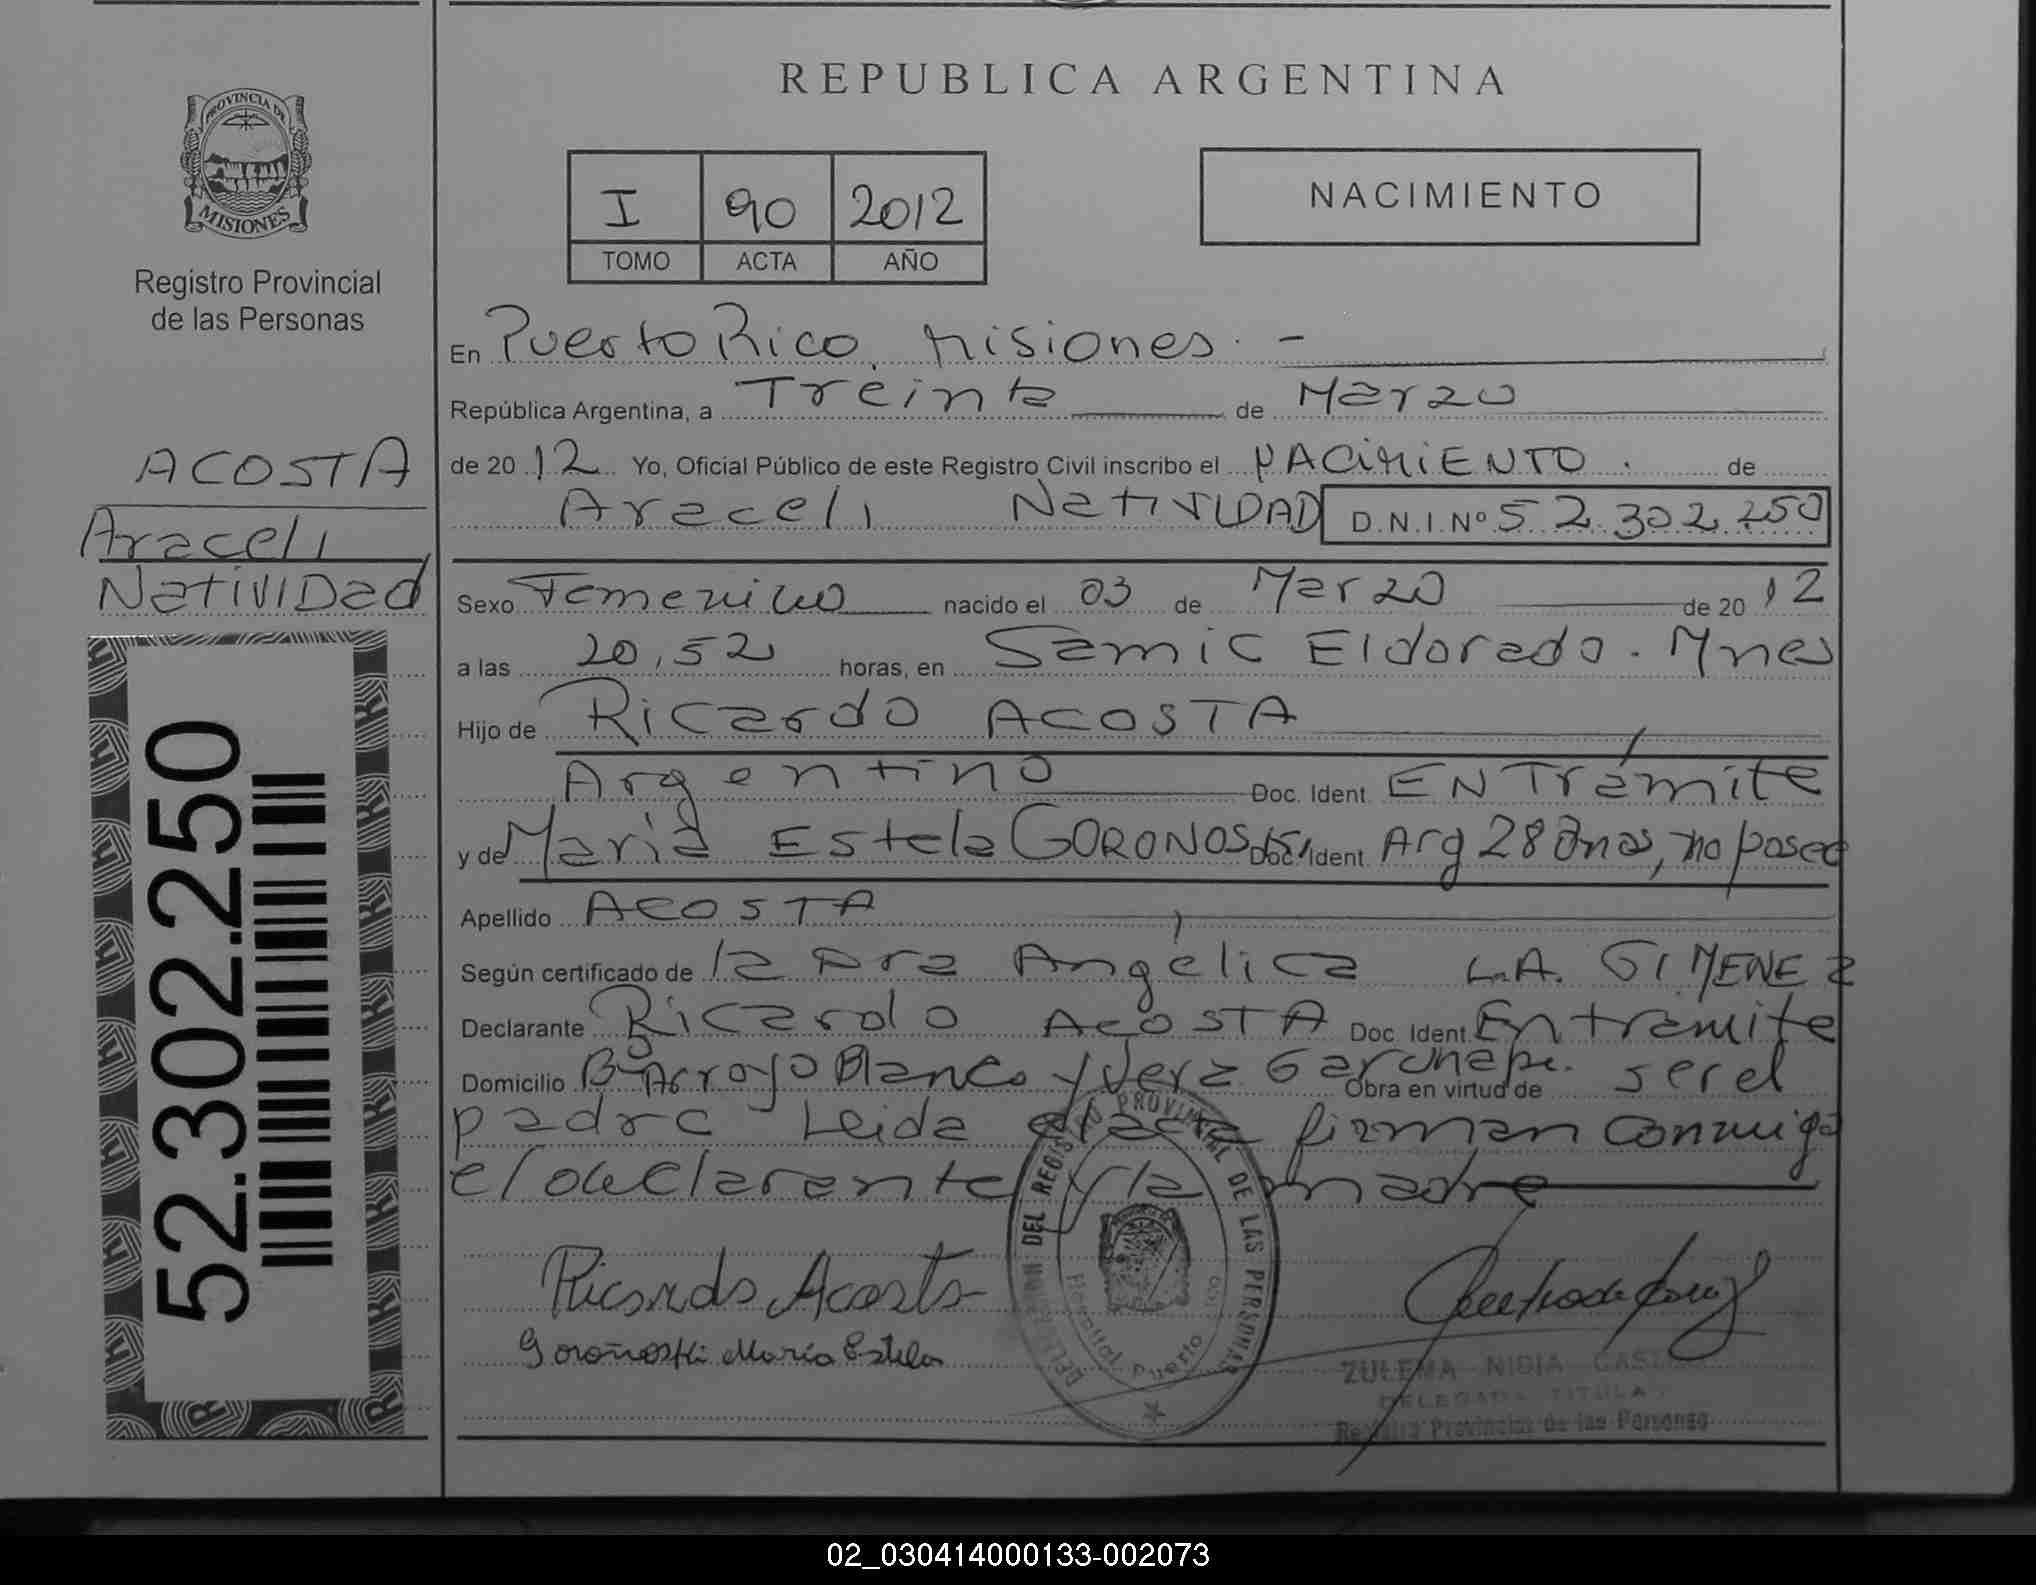 REPUBLICA ARGENTINA
PROVINCIA DE
MISIONES
Registro Provincial
de las Personas
I 90 2012
TOMO ACTA AÑO
NACIMIENTO
ACOSTA
Araceli
Natividad
52.302.250
En Puerto Rico Misiones. -
República Argentina, a Treinta de Marzo
de 2012 Yo, Oficial Público de este Registro Civil inscribo el NACIMIENTO. de
Araceli NatiVIDAD D.N.I.Nº 52.302.250
Sexo Femenino nacido el 03 de Marzo de 2012
a las 20,52 horas, en Samic Eldorado. Mnes
Hijo de Ricardo ACOSTA
Argentino Doc. Ident. EN Trámite
y de María Estela GORONOSKI, Doc. Ident. Arg 28 años, no posee
Apellido ACOSTA
Según certificado de la Dra Angélica L.A. GIMENEZ
Declarante Ricardo ACOSTA Doc. Ident. En tramite
Domicilio Bº Arroyo Blanco y Vera Garuhape. Obra en virtud de ser el
padre Leida el acta firman conmigo
el declarante y la madre
Ricardo Acosta
Goroñoski María Estela
DELEGACION DEL REGISTRO PROVINCIAL DE LAS PERSONAS
Hospital Puerto Rico
ZULEMA NIDIA
DELEGADA TITULAR
Registro Provincial de las Personas
02_030414000133-002073